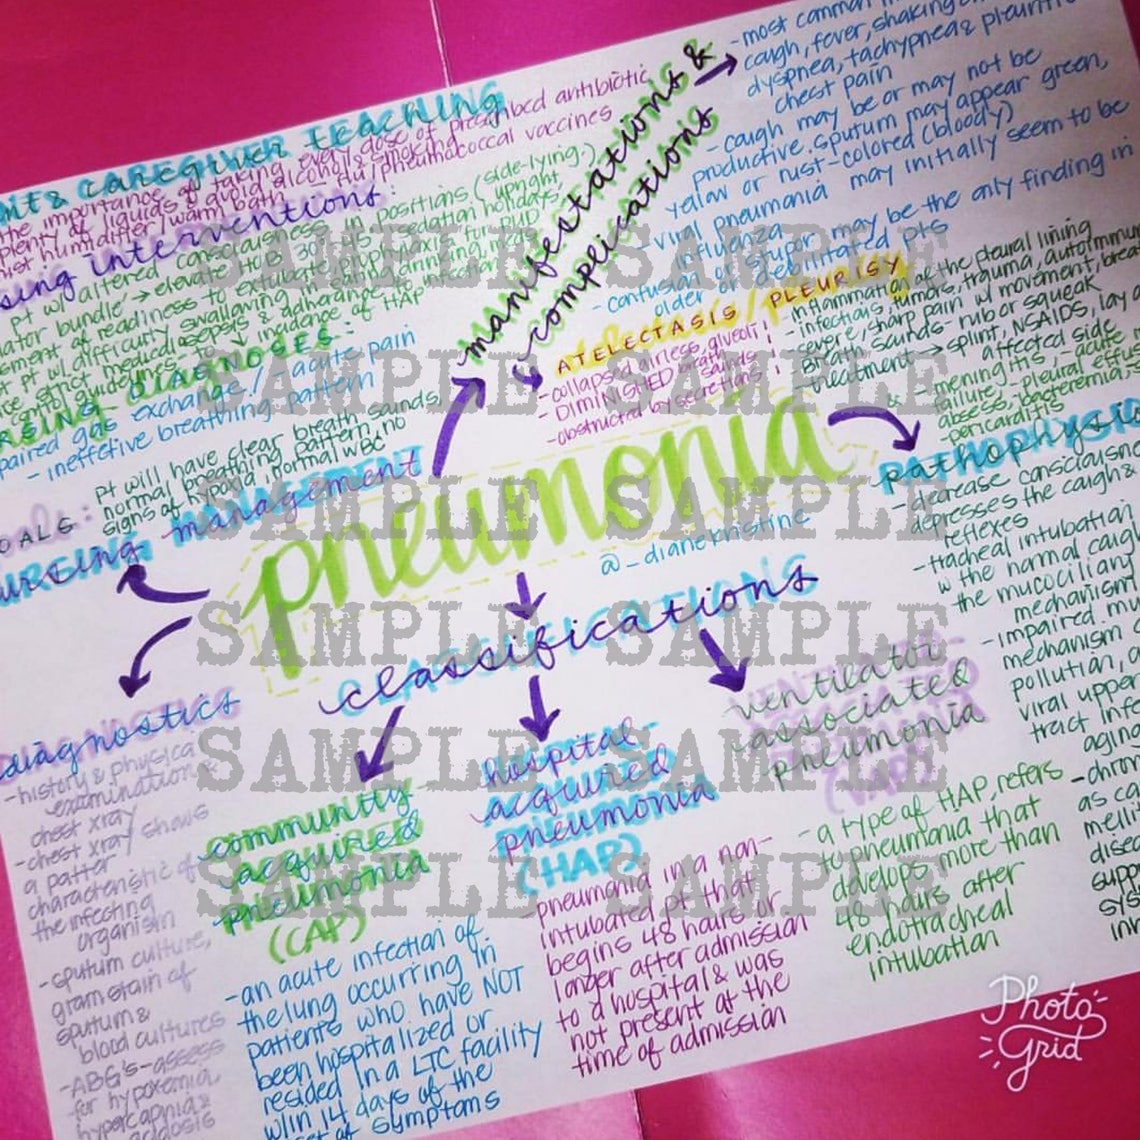 CAREGIVER TEACHING
the importance of taking every dose of prescribed antibiotic
plenty of liquids & avoid alcohol & smoking
mist humidifier/warm bath - flu/pneumococcal vaccines
interventions:
pt w/ altered consciousness in positions (side-lying,
upright
bundle → elevate HOB 30-45° sedation holidays,
of readiness to extubate, prophylaxis for PUD
pt w/ difficulty swallowing
strict medical asepsis & adherance to
guidelines incidence of HAP
DIAGNOSES:
gas exchange / acute pain
- ineffective breathing pattern
OALS: pt will have clear breath sounds,
normal breathing pattern, no
signs of hypoxia, normal WBC
URSING management
manifestations &
complications
- most common
cough, fever, shaking
dyspnea, tachypnea & pleuritic
chest pain
- cough may be or may not be
productive. sputum may appear green,
yellow or rust-colored (bloody)
- viral pneumonia may initially seem to be
influenza
- confusion or stupor may be the only finding in
older or debilitated pts
ATELECTASIS / PLEURISY
- collapsed airless, alveoli
- DIMINISHED breath
sounds
- obstructed by secretions
- inflammation of the pleural lining
- infectious, tumors, trauma, autoimmune
- severe, sharp pain w/ movement,
- Breath sounds - rub or squeak
- treatment → splint, NSAIDS, lay
affected side
&
meningitis, - acute
failure, - pleural
abscess, - bacteremia,
- pericarditis
pneumonia
@_dianekristine
PATHOPHYSIO
- decrease consciousne
depresses the cough &
reflexes
- tracheal intubation
w the normal cough
the mucociliary
mechanism
- impaired mu
mechanism
pollution,
viral upper
tract infe
aging
- chron
as ca
melli
disea
supp
sys
classifications
diagnostics
- history & physical
examination &
chest xray
- chest xray shows
a patter
characteristic of
the infecting
organism
- sputum culture,
gram stain of
sputum &
blood cultures
- ABG's - assess
for hypoxemia,
hypercapnia &
acidosis
community
acquired
pneumonia
(CAP)
- an acute infection of
the lung occurring in
patients who have NOT
been hospitalized or
resided in a LTC facility
w/in 14 days of the
of symptoms
hospital-
acquired
pneumonia
(HAP)
- pneumonia in a non-
intubated pt that
begins 48 hours or
longer after admission
to a hospital & was
not present at the
time of admission
ventilator
associated
pneumonia
(VAP)
- a type of HAP, refers
to pneumonia that
develops more than
48 hours after
endotracheal
intubation
SAMPLE SAMPLE
SAMPLE SAMPLE
SAMPLE SAMPLE
SAMPLE SAMPLE
SAMPLE SAMPLE
SAMPLE SAMPLE
Photo
Grid